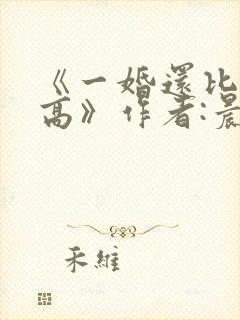 《一婚還比
高》作者:晨
禾維